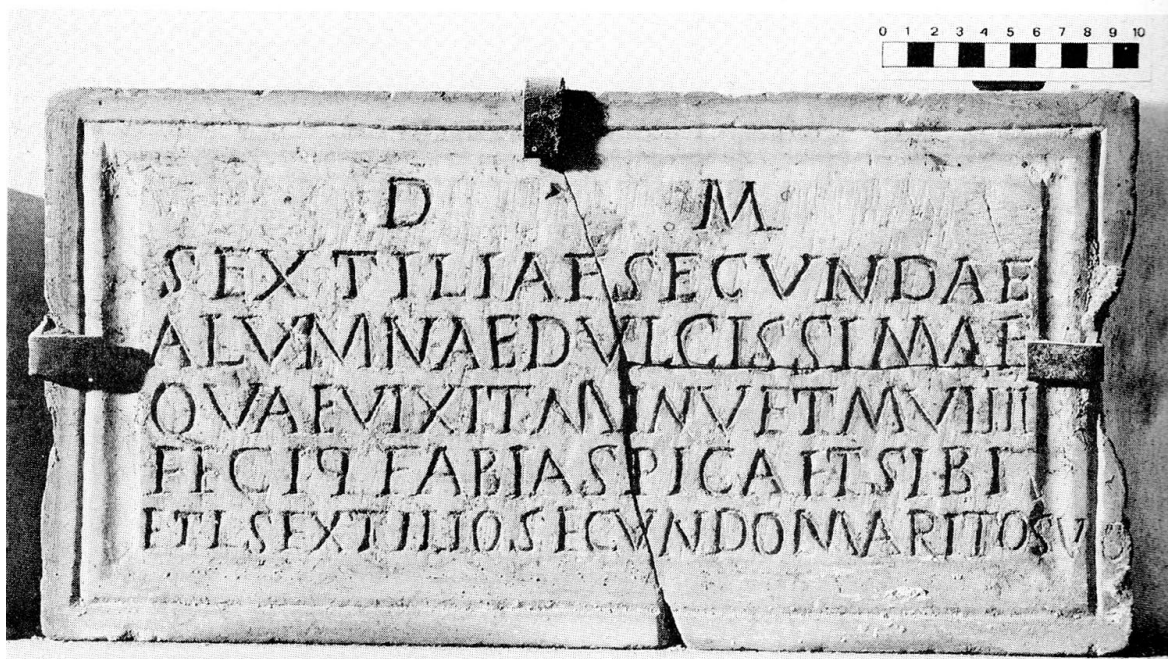 0 1 2 3 4 5 6 7 8 9 10
D M
SEXTILIAE SECVNDAE
ALVMNAE DVLCISSIMAE
QVAE VIXIT ANN V ET M VIIII
FECIT FABIA SPICA ET SIBI
ET L SEXTILIO SECVNDO MARITO SVO